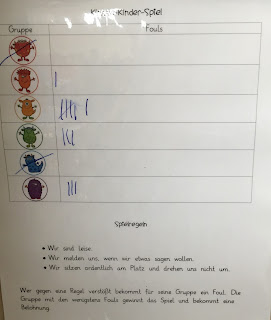 Kinder-Spiel
Gruppe Fouls
Spielregeln
Wir sind leise.
Wir melden uns, wenn wir etwas sagen wollen.
Wir sitzen ordentlich am Platz und drehen uns nicht um.
Wer gegen eine Regel verstößt bekommt für seine Gruppe ein Foul. Die
Gruppe mit den wenigsten Fouls gewinnt das Spiel und bekommt eine
Belohnung.